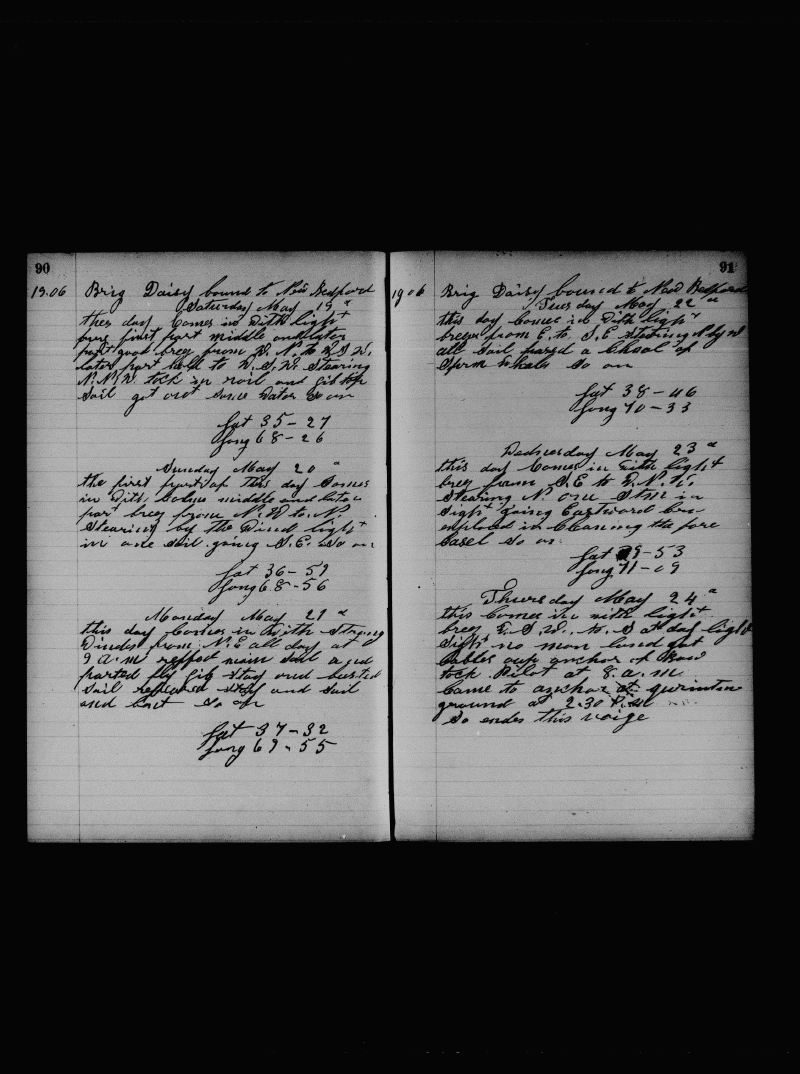 90
19.06 Brig Daisy bound to New Bedford
Saturday May 19 "
thes day Comes in With light
brees first part middle and later
part good brey from W. N. to W S W.
later part hald to W. S. W. Stearing
N. N. W. tock in and gib top
Sail got out Water So on
Lat 35-27
Long 68-26
Sunday May 20 "
the first part of this day Comes
in With middle and later
part brey from N. W to N.
Stearing by the Wind light
in one Sail going S.E. So on
Lat 36-59
Long 68-56
Monday May 21 "
this day Comes in With Strong
Winds from N. E all day at
9 a.m main Sail and
parted fly Gib Stay and busted
Sail Stay and Sail
and So on
Lat 37-32
Long 69-55
91
1906 Brig Daisy bound to New Bedford
Tuesday May 22 "
this day Comes in With light
brees from E. to S. E Stering N by W
all Sail pased a Choal of
Sperm Whales So on
Lat 38-46
Long 70-33
Wednesday May 23 "
this day Comes in with light
brey from S. E to
Stearing N. one Stm in
Sight Going Eastward
in Cleaning the fore
Casel So on
Lat 39-53
Long 71-09
Thursday May 24 "
this Comes in with light
brey to S at day light
Sight no man land got
Cables anchor of Bow
tock Pilot at 8. a. m.
Came to anchor at
ground at 2.30 P.M
So endes this voige